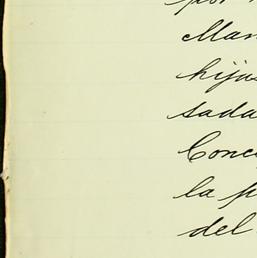 por
Man
hijus
sada
Conce
la p
del